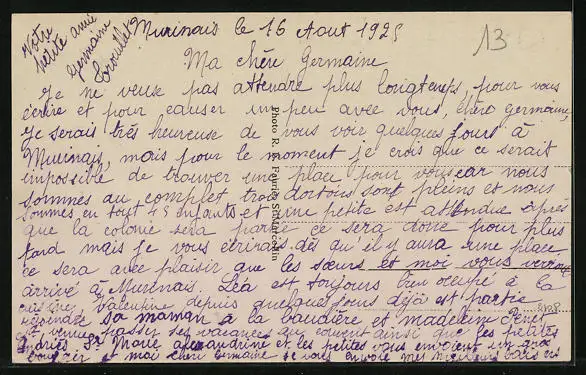 Votre
petite amie
Germaine
Murinais le 16 Aout 1925
13
Ma chère Germaine
Je ne veux pas attendre plus longtemps pour vous
écrire et pour causer un peu avec vous, chère Germaine,
Je serais très heureuse de vous voir quelques jours à
Murinais, mais pour le moment je crois que ce serait
impossible de trouver une place pour vous car nous
sommes au complet trois dortoirs sont pleins et nous
sommes en tout 45 enfants et une petite est attendue après
que la colonie sera partie ce sera donc pour plus
tard mais je vous écrirais dès qu'il y aura une place
ce sera avec plaisir que les sœurs et moi vous verrons
arrivé à Murinais. Léa est toujours bien occupé à la
Valentine depuis quelques jours déjà est partie
rejoindre sa maman à la baudière et madeleine
venue passer ses vacances au couvent ainsi que les petites
Marie alexandrine et les petites vous envoient un gros
et moi chère Germaine je vous envoie mes meilleurs baisers
Photo R. Fauries St-Marcellin